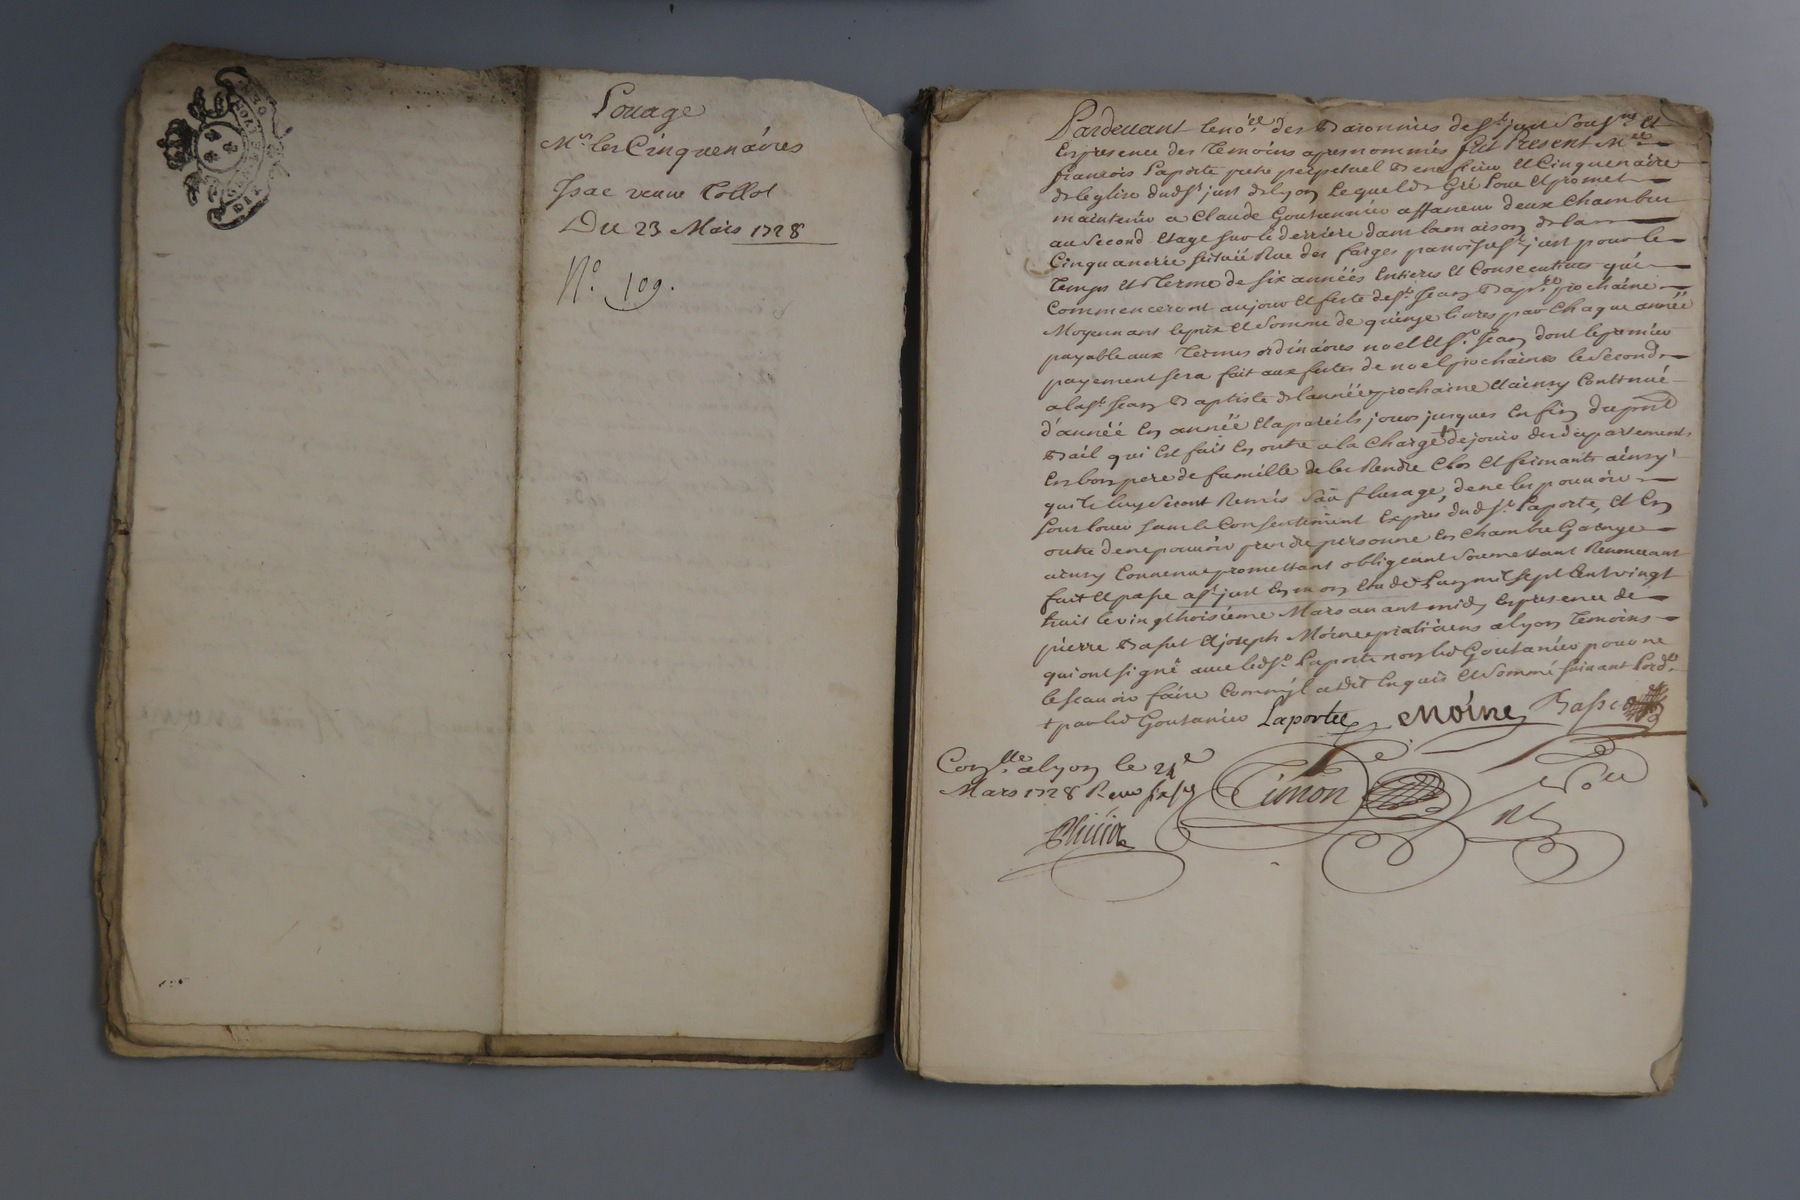 Louage
Mrs les Cinquenaires
Isac veuve Collot
Du 23 Mars 1728
N° 109.
Pardevant le no.re des Baronnies de St just Soussné Et
En presence des Temoins apres nommés fut Present Mre
francois Laporte pretre perpetuel Beneficier Et Cinquenaire
de leglise dud St just de lyon Lequel de Gré Loue Et promet
maintenir a Claude Goutanier affaneur deux Chambres
au Second Etage sur le derriere dans la maison de la
Cinquanerie scituée Rue des farges parroisse St just pour le
Temps Et Terme de six années Entieres Et Consecutives qui
Commenceront au jour Et feste de St Jean Bapte prochaine
Moyennant le prix Et Somme de quinze livres par Chaque année
payable aux Termes ordinaires noel Et St Jean dont le premier
payement sera fait aux festes de noel prochaines le Second
a la St Jean Baptiste de lannée prochaine Et ainsy Continué
d'année En année Et a pareils jours jusques En fin du pnt
Bail qui Est fait En outre a la Charge + de jouir des departements
En bon pere de famille de les Rendre Clos Et fermants ainsy
quils luy Seront Remis sauf lusage, de ne les pouvoir
sous louer sans le Consentement Expres dud Sr Laporte, Et En
outre de ne pouvoir prendre personne En Chambre Garnye
ainsy Convenu promettant obligeant Soumettant Renonceant
fait Et passé a St just En mon Etude Lan mil sept Cent vingt
huit le vingt troisieme Mars avant midy En presence de
pierre Basset Et joseph Moine praticiens a lyon Temoins
qui ont signé avec led Sr Laporte non led Goutanier pour ne
le scavoir faire Comm'il a dit Enquis Et Sommé suivant Lord.ce
+ par led Goutanier Laporte Moine Basset
Conlle a lyon le 24e
Mars 1728 Reçu six s
Timon